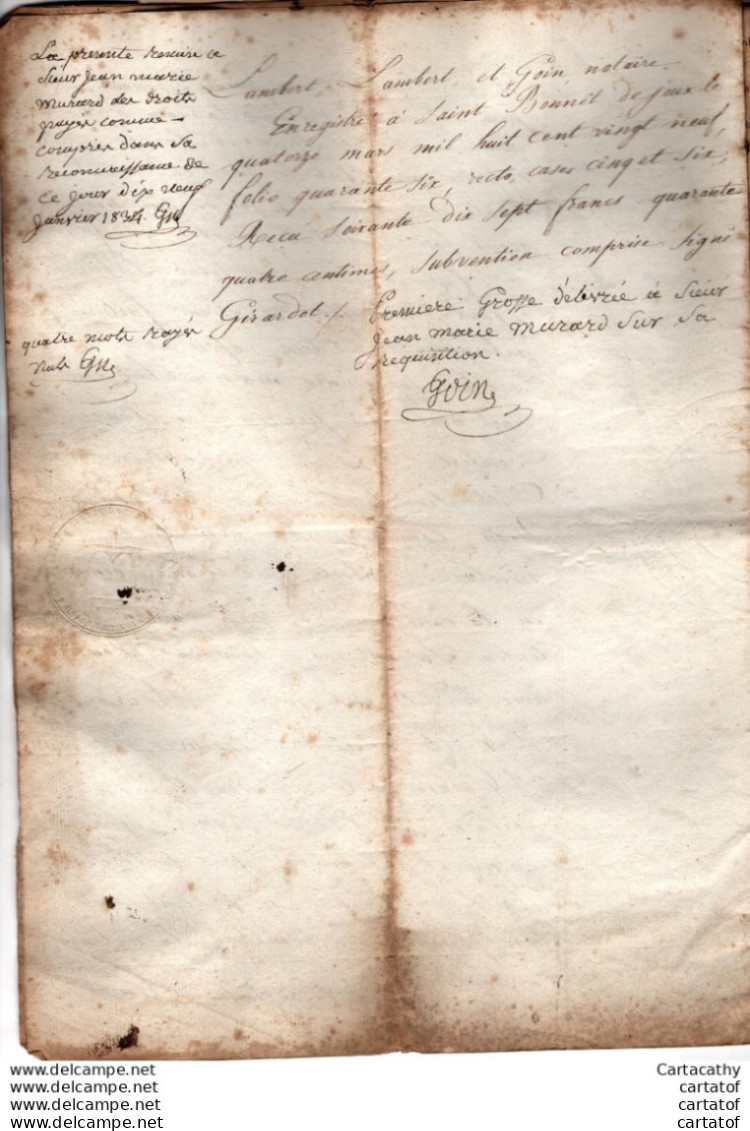 La presente remise a
Sieur Jean marie
Murard des droits
payés comme
compris dans sa
reconnaissance de
ce jour dix neuf
janvier 1834. Gn
quatre mots rayés
nuls Gn
Lambert, Lambert, et Goin notaire.
Enregistré à Saint Bonnet de joux le
quatorze mars mil huit cent vingt neuf,
folio quarante six, recto, cases cinq et six,
Recu soixante dix sept francs quarante
quatre centimes, subvention comprise signé
Girardot./.
Premiere Grosse délivrée à Sieur
Jean Marie Murard sur sa
requisition.
Goin
www.delcampe.net
www.delcampe.net
www.delcampe.net
www.delcampe.net
Cartacathy
cartatof
cartatof
cartatof